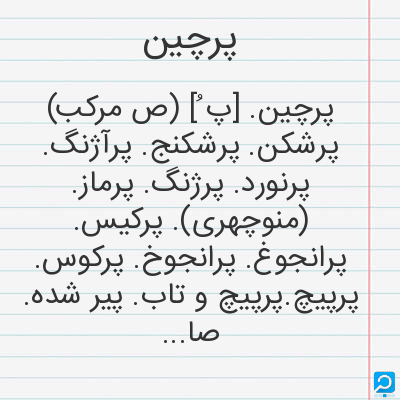 پرچین
پرچین. [پ ُ] (ص مرکب)
پرشکن. پرشکنج. پرآژنگ.
پرنورد. پرژنگ. پرماز.
(منوچهری). پرکیس.
پرانجوغ. پرانجوخ. پرکوس.
پرپیچ.پرپیچ و تاب. پیر شده.
صا...